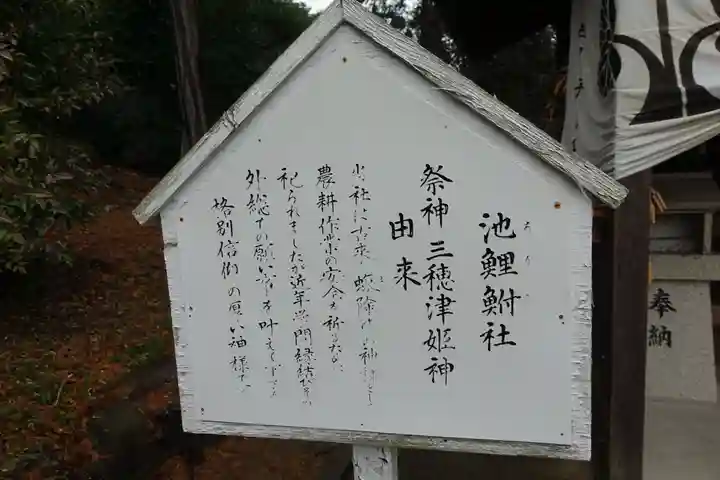 池鯉鮒社
祭神 三穂津姫神
由来
当社は古来 蝮除けの神
農耕作業の安全を祈るために
祀られましたが近年学門縁結び
外総ての願い事を叶えて下さる
格別信仰の厚い神様です
奉納